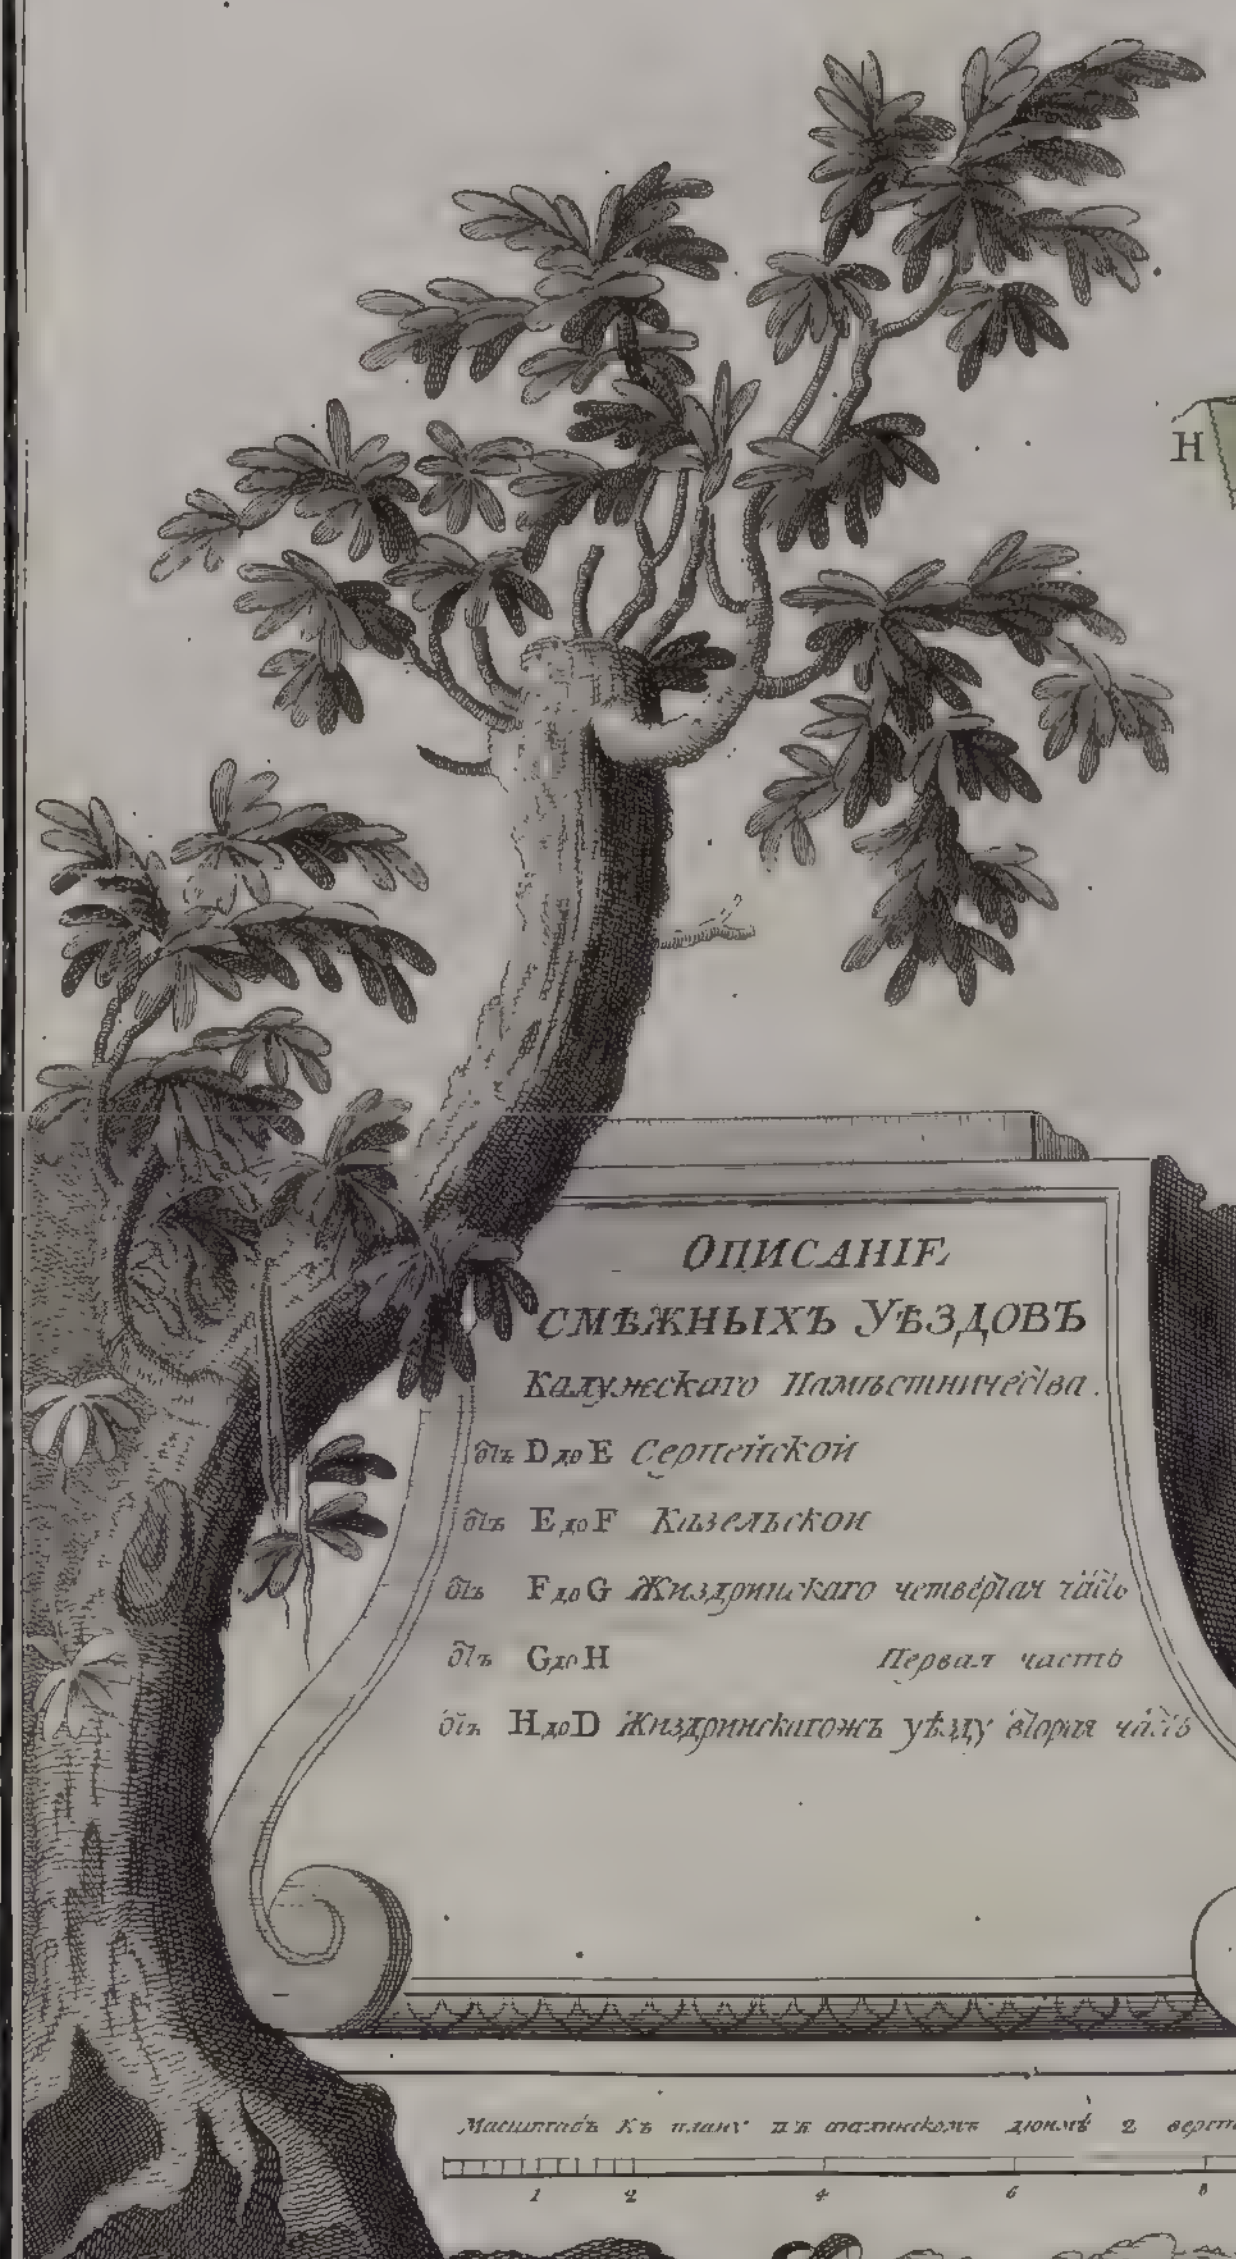 H
ОПИСАНІЕ
СМѢЖНЫХЪ УѢЗДОВЪ
Калужскаго Намѣстничества.
отъ D до E Серпейской
отъ E до F Казельской
отъ F до G Жиздринскаго четвертая часть
отъ G до H Первая часть
отъ H до D Жиздринскагожъ уѣзду вторая часть
Масштабъ Къ плану въ аглинскомъ дюймѣ 2 верст
1 2 4 6 8